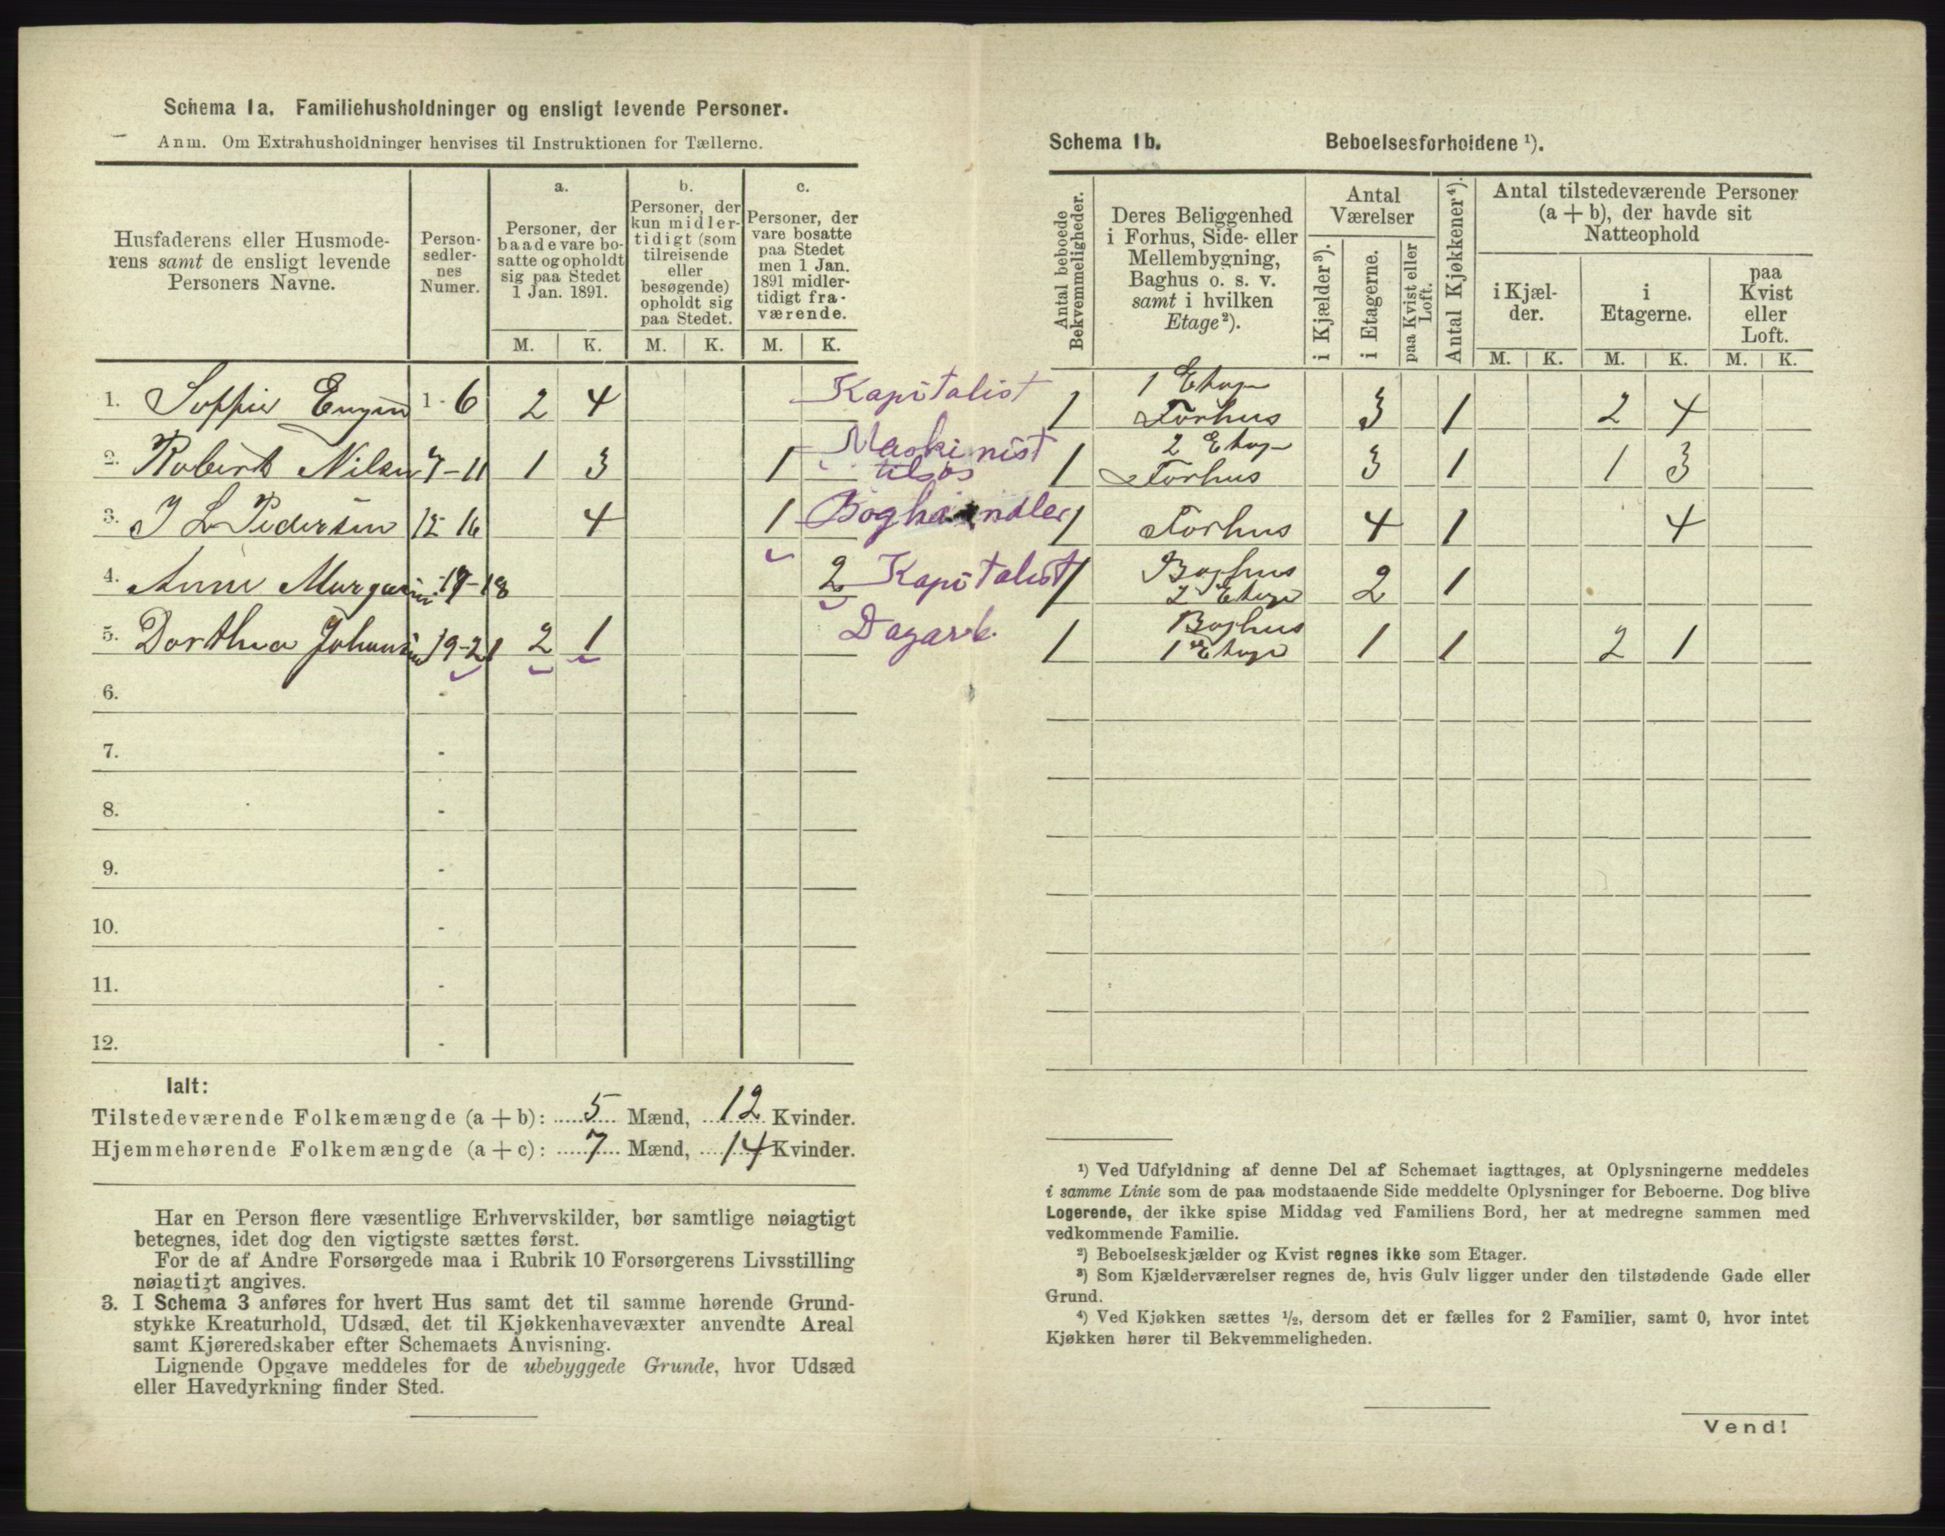 Schema 1a. Familiehusholdninger og ensligt levende Personer.
Anm. Om Extrahusholdninger henvises til Instruktionen for Tællerne.
Husfaderens eller Husmode-
rens samt de ensligt levende
Personers Navne.
Person-
sedler-
nes
Numer.
a.
Personer, der
baade vare bo-
satte og opholdt
sig paa Stedet
1 Jan. 1891.
b.
Personer, der
kun midler-
tidigt (som
tilreisende
eller
besøgende)
opholdt sig
paa Stedet.
c.
Personer, der
vare bosatte
paa Stedet
men 1 Jan.
1891 midler-
tidigt fra-
værende.
M. K. M. K. M. K.
1. Soffie 1-6 2 4 Kapitalist
2. Robert Nilsen 7-11 1 3 1 Maskinist tilsøs
3. J L Pedersen 12-16 4 1 Boghandler
4. Anne 17-18 2 Kapitalist
5. Dorthea Johansen 19-21 2 1 Dagarb.
6. -
7. -
8. -
9. -
10. -
11. -
12. -
Ialt:
Tilstedeværende Folkemængde (a + b): 5 Mænd, 12 Kvinder.
Hjemmehørende Folkemængde (a + c): 7 Mænd, 14 Kvinder.
Har en Person flere væsentlige Erhvervskilder, bør samtlige nøiagtigt
betegnes, idet dog den vigtigste sættes først.
For de af Andre Forsørgede maa i Rubrik 10 Forsørgerens Livsstilling
nøiagtigt angives.
3. I Schema 3 anføres for hvert Hus samt det til samme hørende Grund-
stykke Kreaturhold, Udsæd, det til Kjøkkenhavevæxter anvendte Areal
samt Kjøreredskaber efter Schemaets Anvisning.
Lignende Opgave meddeles for de ubebyggede Grunde, hvor Udsæd
eller Havedyrkning finder Sted.
Schema 1b. Beboelsesforholdene ¹).
Antal beboede
Bekvemmeligheder.
Deres Beliggenhed
i Forhus, Side- eller
Mellembygning,
Baghus o. s. v.
samt i hvilken
Etage²).
Antal
Værelser
i Kjælder³).
i Etagerne.
paa Kvist eller
Loft.
Antal Kjøkkener⁴).
Antal tilstedeværende Personer
(a + b), der havde sit
Natteophold
i Kjæl-
der.
i
Etagerne.
paa
Kvist
eller
Loft.
M. K. M. K. M. K.
1 1 Etage Forhus 3 1 2 4
1 2 Etage Forhus 3 1 1 3
1 Forhus 4 1 4
1 Baghus 2 Etage 2 1
1 Baghus 1 Etage 1 1 2 1
¹) Ved Udfyldning af denne Del af Schemaet iagttages, at Oplysningerne meddeles
i samme Linie som de paa modstaaende Side meddelte Oplysninger for Beboerne. Dog blive
Logerende, der ikke spise Middag ved Familiens Bord, her at medregne sammen med
vedkommende Familie.
²) Beboelseskjælder og Kvist regnes ikke som Etager.
³) Som Kjælderværelser regnes de, hvis Gulv ligger under den tilstødende Gade eller
Grund.
⁴) Ved Kjøkken sættes ½, dersom det er fælles for 2 Familier, samt 0, hvor intet
Kjøkken hører til Bekvemmeligheden.
Vend!